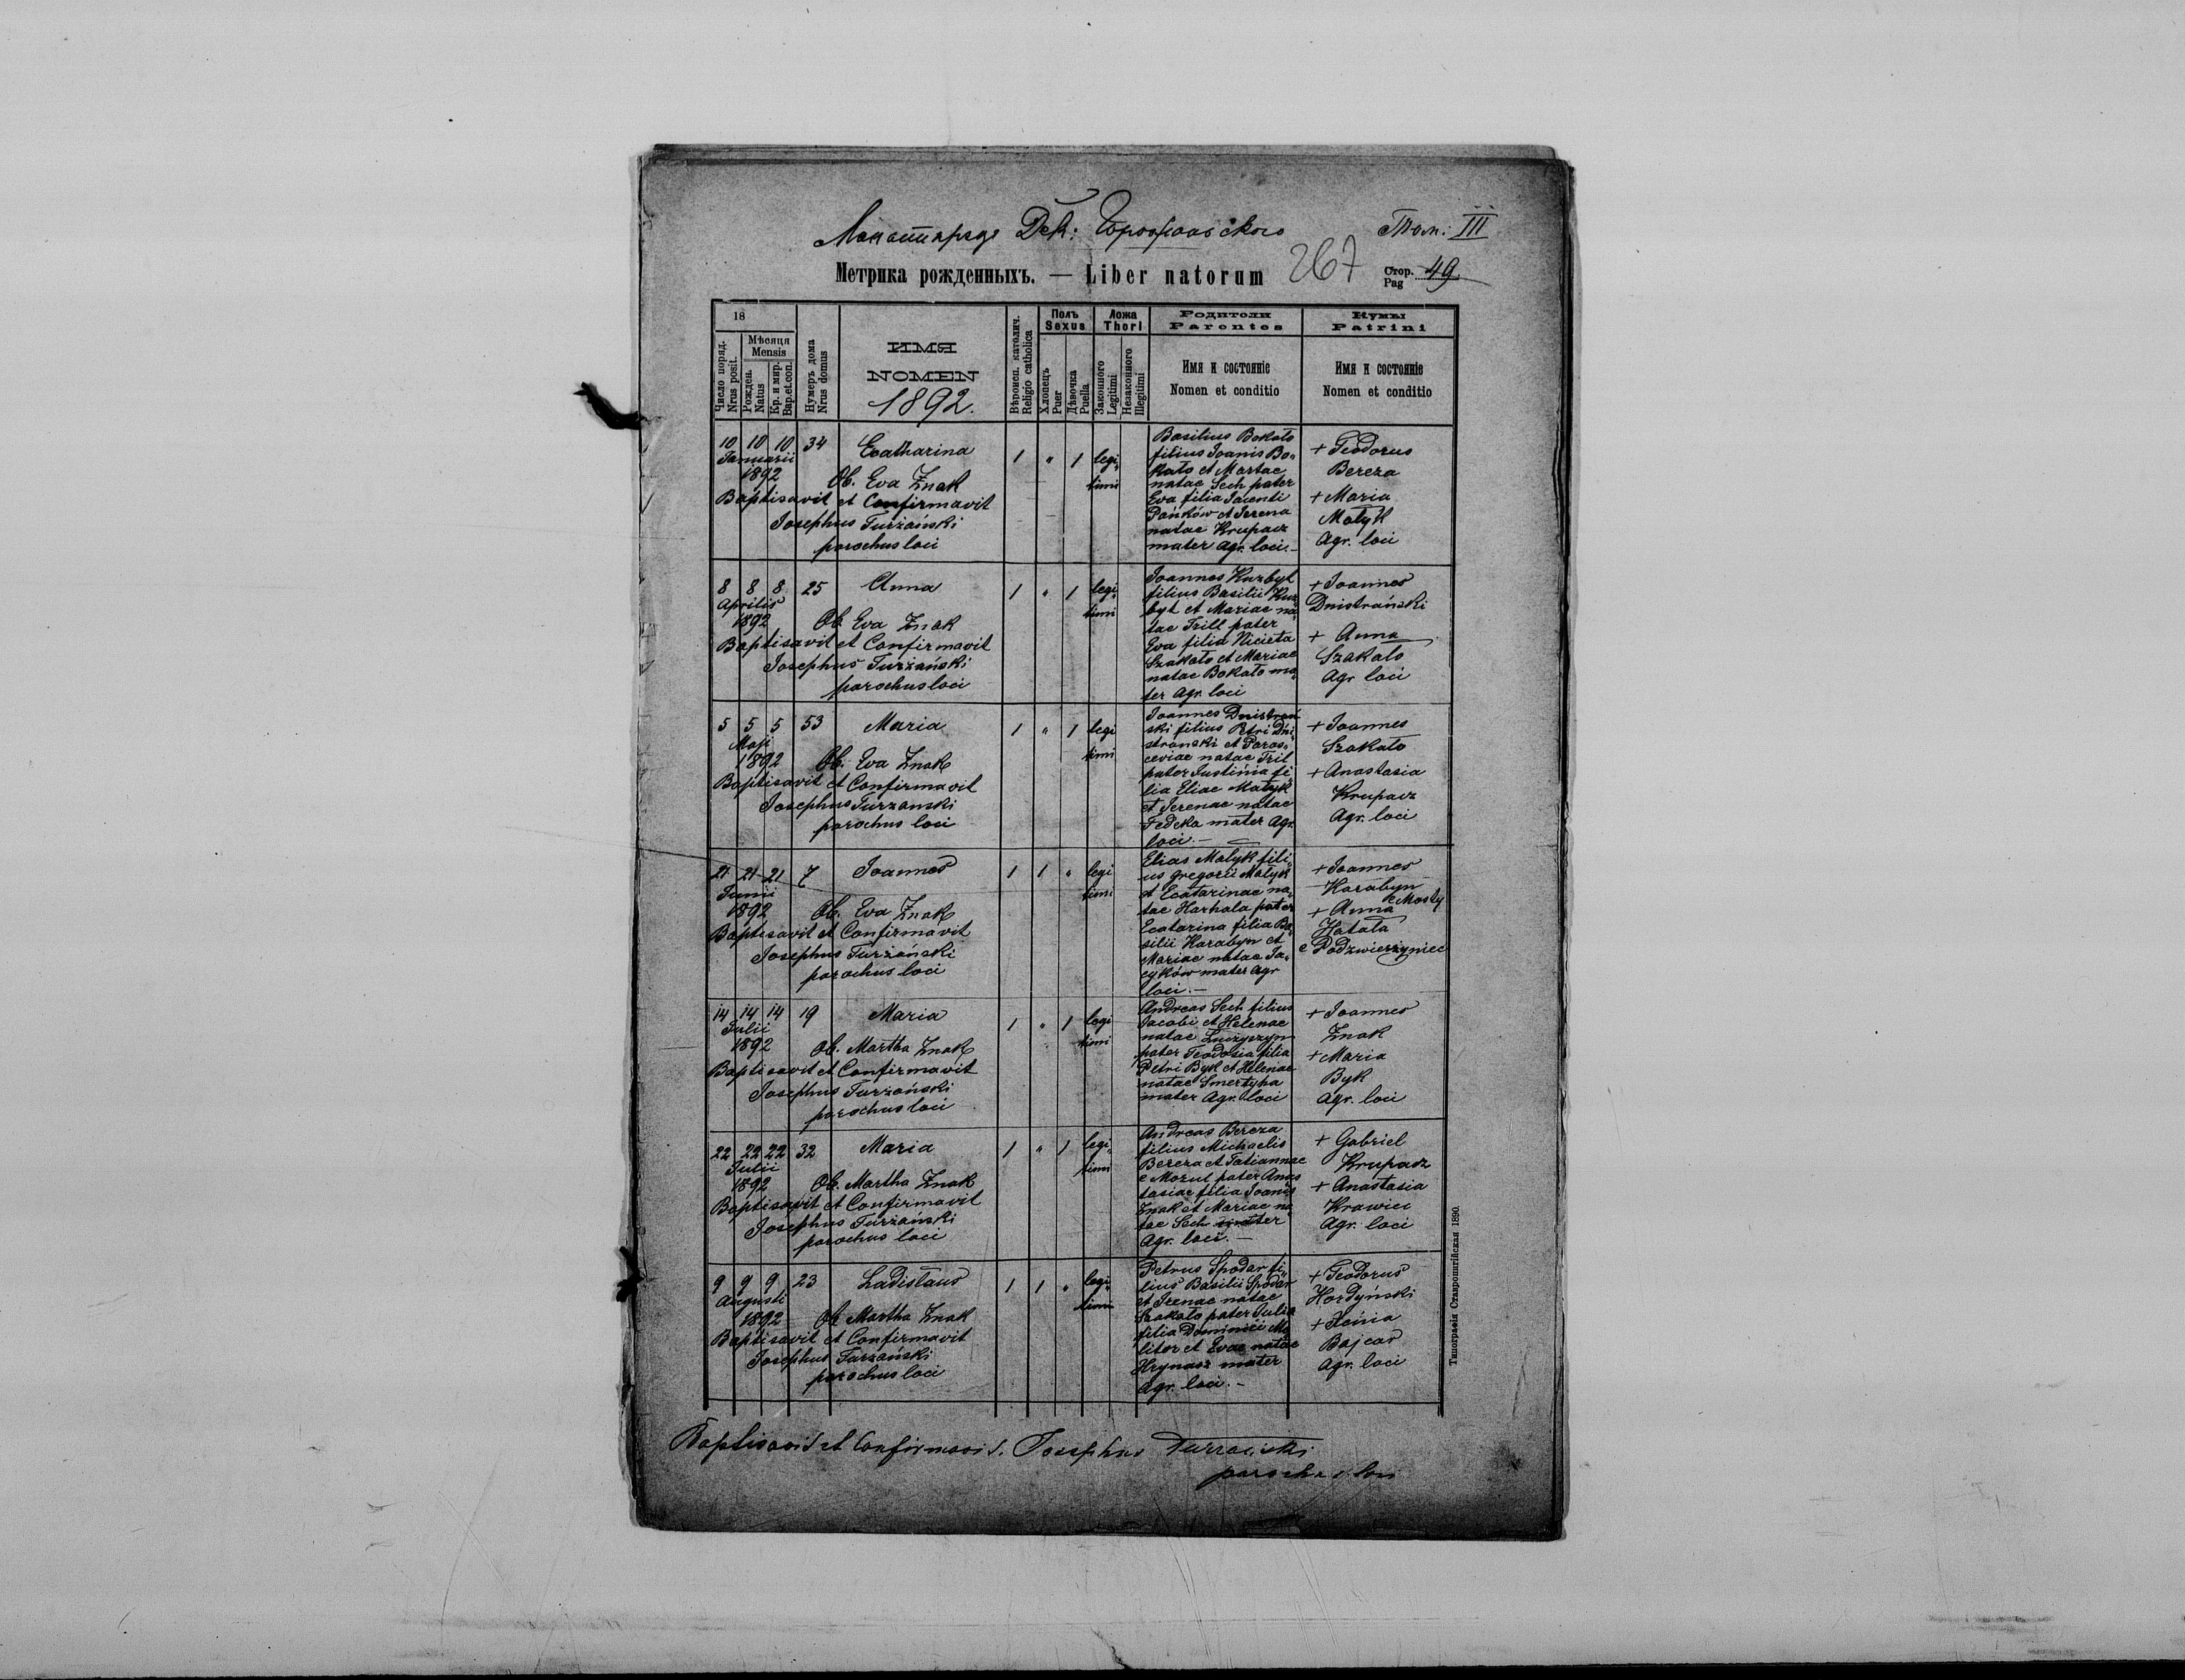 Дек: Том: III
Метрика рожденныхъ. — Liber natorum 267 Стор. Pag 49
18
Число поряд. Nrus posit.
Мѣсяця Mensis
Рожден. Natus
Кр. и мир. Bap.et.con.
Нумеръ дома Nrus domus
ИМЯ
NOMEN
1892.
Вѣроисп. католич. Religio catholica
Полъ Sexus
Хлопецъ Puer
Дѣвочка Puella
Ложа Thori
Законного Legitimi
Незаконного Illegitimi
Родители Parentes
Имя и состоянiе
Nomen et conditio
Кумы Patrini
Имя и состоянiе
Nomen et conditio
10 10 10 34 Ecatharina 1 " 1 legi-
Januarii timi
1892 Ob. Eva Znak
Baptisavit et Confirmavit
Josephus Turżański
parochus loci
Basilius Bokało
filius Joanis Bo-
kało et Martae
natae Sech pater
Eva filia Jacenti
Pańków et Jerena
natae Krupacz
mater Agr. loci.-
+ Teodorus
Bereza
+ Maria
Małyk
Agr. loci
8 8 8 25 Anna 1 " 1 legi-
Aprilis timi
1892 Ob. Eva Znak
Baptisavit et Confirmavit
Josephus Turżański
parochus loci
Joannes Kuzbyt
filius Basilii Kuz
byt et Mariae na
tae Trill pater
Eva filia Niceta
Szakało et Mariae
natae Bokało ma-
ter Agr. loci
+ Joannes
Dnistrański
+ Anna
Szakało
Agr loci
5 5 5 53 Maria 1 " 1 legi
Maji timi
1892 Ob. Eva Znak
Baptisavit et Confirmavit
Josephus Turzanski
parochus loci
Joannes Dnistrań
ski filius Petri Dni-
strański et Paras-
ceviae natae Tril
pater Justinia fi-
lia Eliae Małyk
et Jerenae natae
Fedeka mater Agr.
loci.-
+ Joannes
Szakało
+ Anastasia
Krupacz
Agr. loci
21 21 21 7 Joannes 1 1 " legi
Junii timi
1892 Ob. Eva Znak
Baptisavit et Confirmavit
Josephus Turżański
parochus loci
Elias Małyk fili-
us Gregorii Małyk
et Ecatarinae na-
tae Harhala pater
Ecatarina filia Ba-
silii Harabyn et
Mariae natae Ja-
cyków mater Agr
loci.-
+ Joannes
Harabyn
e Mosty
+ Anna
Hatala
e Podzwierzyniec
14 14 14 19 Maria 1 " 1 legi
Julii timi
1892 Ob. Martha Znak
Baptisavit et Confirmavit
Josephus Turzański
parochus loci
Andreas Sech filius
Jacobi et Helenae
natae
pater Teodosia filia
Petri Byk et Helenae
natae Smertyha
mater Agr. loci
+ Joannes
Znak
+ Maria
Byk
Agr. loci
22 22 22 32 Maria 1 " 1 legi-
Julii timi
1892 Ob. Martha Znak
Baptisavit et Confirmavit
Josephus Turżański
parochus loci
Andreas Bereza
filius Michaelis
Bereza et Tatiannae
e Mozul pater Anas
tasiae filia Joanis
Znak et Mariae na
tae Sech mater
Agr. loci.-
+ Gabriel
Krupacz
+ Anastasia
Krawiec
Agr. loci
9 9 9 23 Ladislaus 1 1 " legi-
Augusti timi
1892 Ob Martha Znak
Baptisavit et Confirmavit
Josephus Turzański
parochus loci
Petrus Spodar fi-
lius Basilii Spodar
et Irenae natae
Szakało pater Julia
filia Dominici Mo
litor et Evae natae
Hrynasz mater
Agr. loci.-
+ Teodorus
Hordyński
+ Xenia
Bajcar
Agr. loci
Типографія Ставропигійская 1890.
Baptisavit et Confirmavit. Josephus Turzański
parochus loci